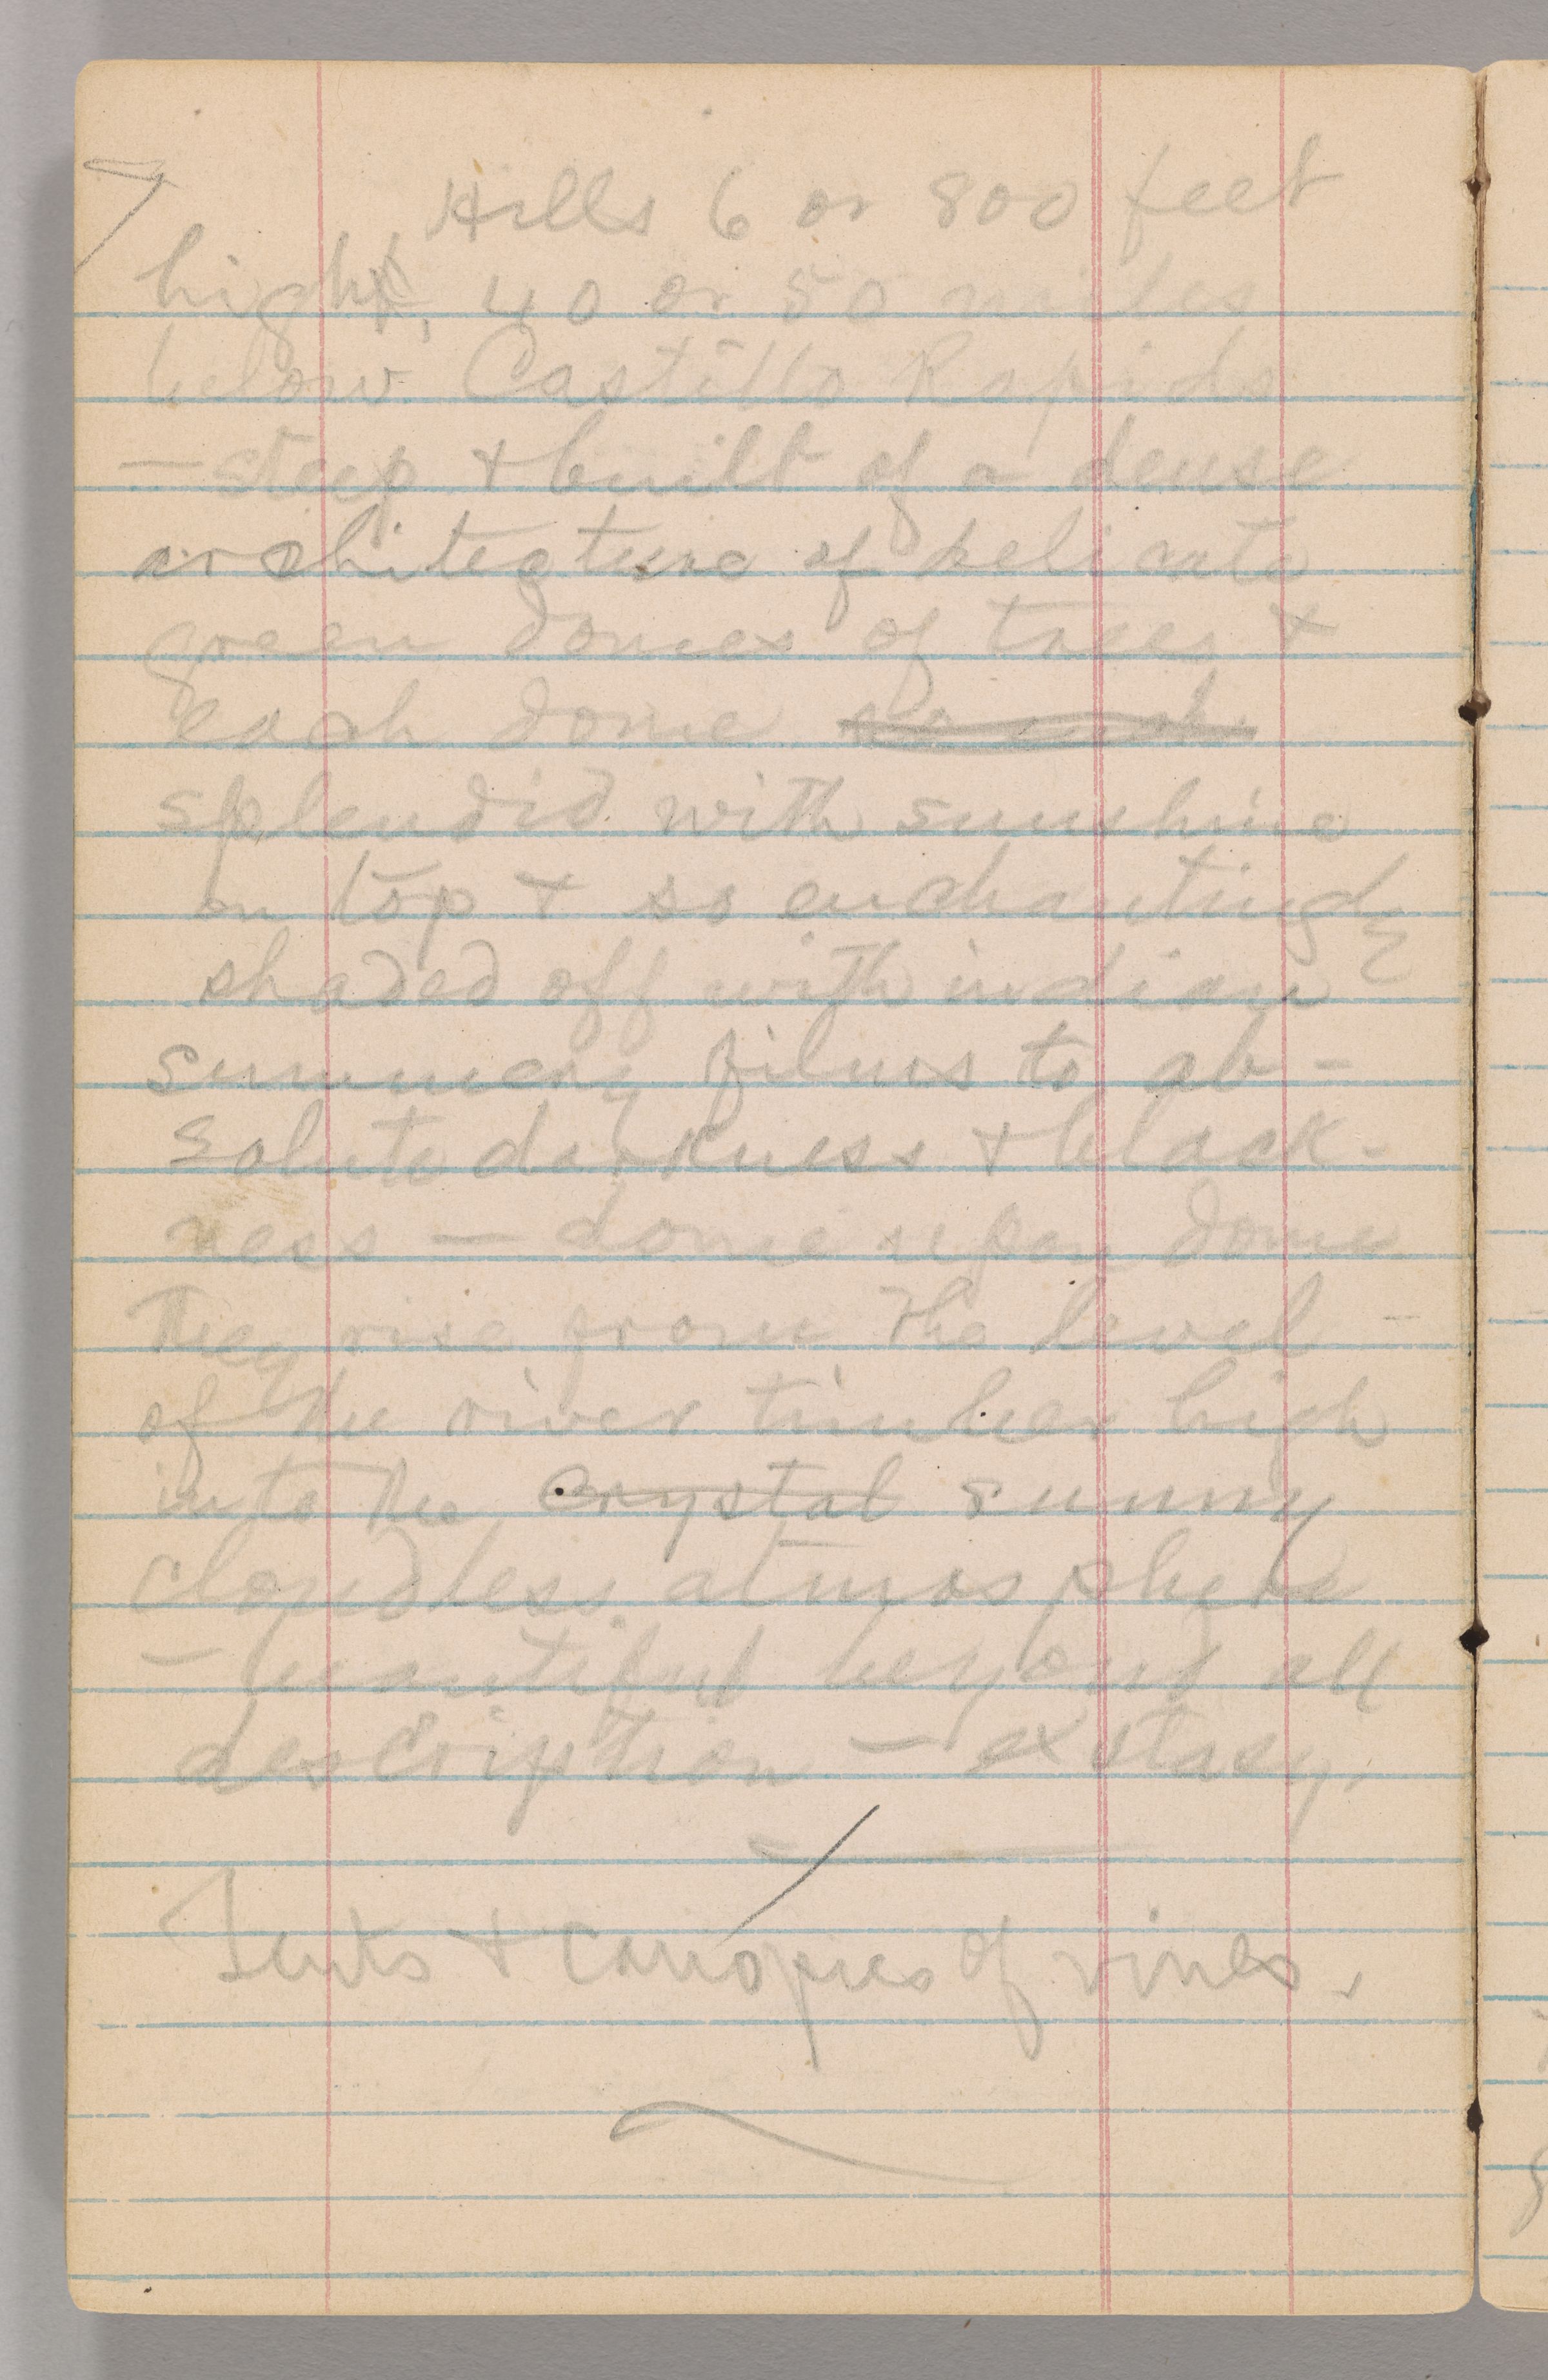 Hills 6 or 800 feet
high, 40 or 50 miles
below Castillo Rapids
—steep & built of a dense
architecture of delicate
green domes of trees &
each dome
splendid with sunshine
on top & so enchantingly
shaded off with indian
summery films to ab-
solute darkness & black-
ness — dome upon dome
They rise from the level
of the river timber high
into the crystal sunny
cloudless atmosphere
— beautiful beyond all
description — exstasy.
Tents & canopies of vines.